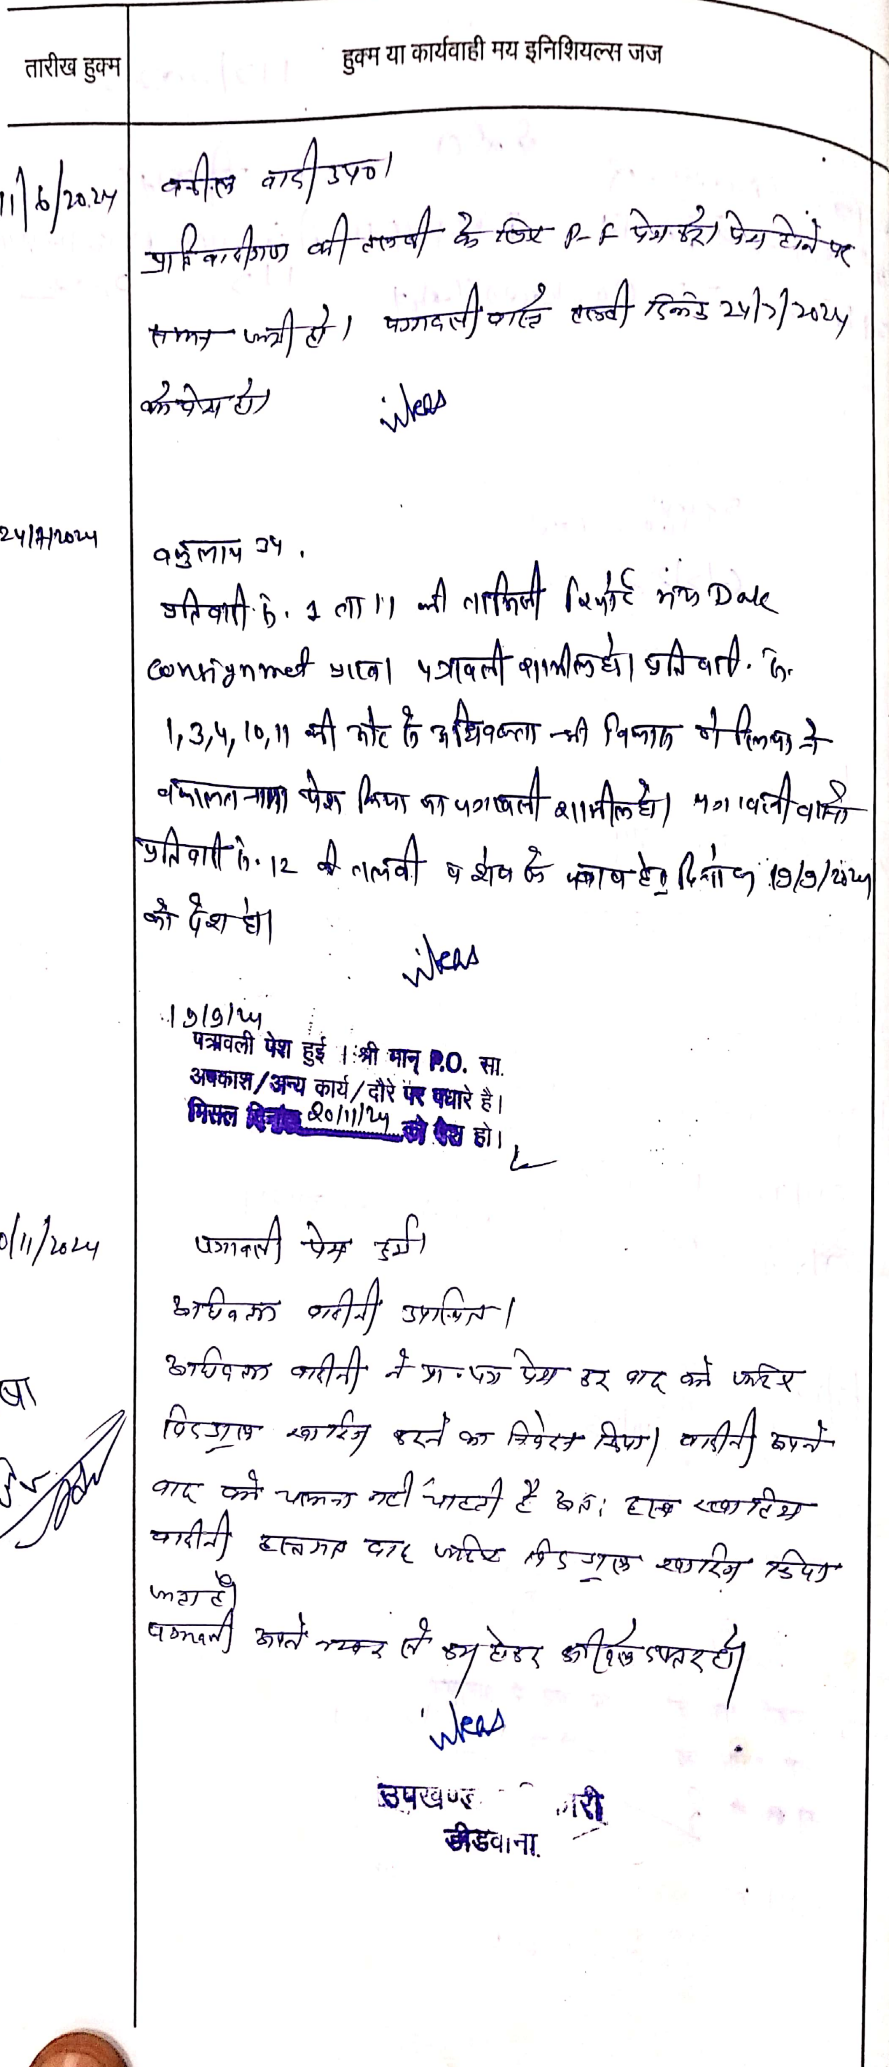 तारीख हुक्म
हुक्म या कार्यवाही मय इनिशियल्स जज
11/6/2024
वकील वादी उप०।
प्रतिवादीगण की तलबी के लिए P-F पेश करे। पेश होने पर
समन जारी हो। पत्रावली वास्ते तलबी दिनांक 24/7/2024
को पेश हो।
24/7/2024
वकुलाय उप.
प्रतिवादी क्र. 1 ता 11 की तामिली रिपोर्ट मय
consignmet प्राप्त। पत्रावली शामील हो। प्रतिवादी. क्र.
1,3,4,10,11 की ओर से अधिवक्ता श्री विकास ने
वकालतनामा पेश किया जा पत्रावली शामील हो। पत्रावली वास्ते
प्रतिवादी क्र. 12 की तलबी व शेष के जवाब हेतु दिनांक 19/9/2024
को पेश हो।
19/9/24
पत्रावली पेश हुई । श्री मान् P.O. सा.
अवकाश/अन्य कार्य/दौरे पर पधारे है।
मिसल दिनांक 20/11/24 को पेश हो।
0/11/2024
पत्रावली पेश हुई।
अधिवक्ता वादीनी उपस्थित।
अधिवक्ता वादीनी ने प्रा.पत्र पेश कर वाद को जरिये
विड्रॉल खारिज करने का निवेदन किया। वादीनी अपने
वाद को चलाना नहीं चाहती है अतः
वादीनी वाद जरिये विड्रॉल खारिज किया
जाता है।
पत्रावली अपने नम्बर से कम होकर दाखिल दफ्तर हो।
उपखण्ड री
डीडवाना.